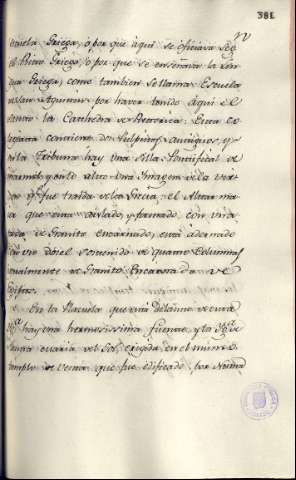 381
escuela Griega; o por que aqui se oficiava seg.n
el Rito Griego, o por que se enseñava la Len
gua Griega; como tambien se llama Escuela
de San Agustin por haver tenido aqui el
Santo la Cathedra de Retorica: Esta co
contiene dos Pulpitos antiguos, y
en la Tribuna hay una Silla Pontifical de
marmol, y en lo alto una Imagen de la
que fue traida de la Grecia; el Altar ma
or que esta aislado, y formado con una
de Granito encarnado, está adornado
con un dosel sostenido de quatro Columnas
igualmente de Granito Encarnado de
Egipto.
En la Plazuela que está delante de esta
Yg.a hay una hermosissima fuente, y la Yg.a de
Santa Maria del Sol, erigida en el mismo
templo de Vesta, que fue edificado por Numa